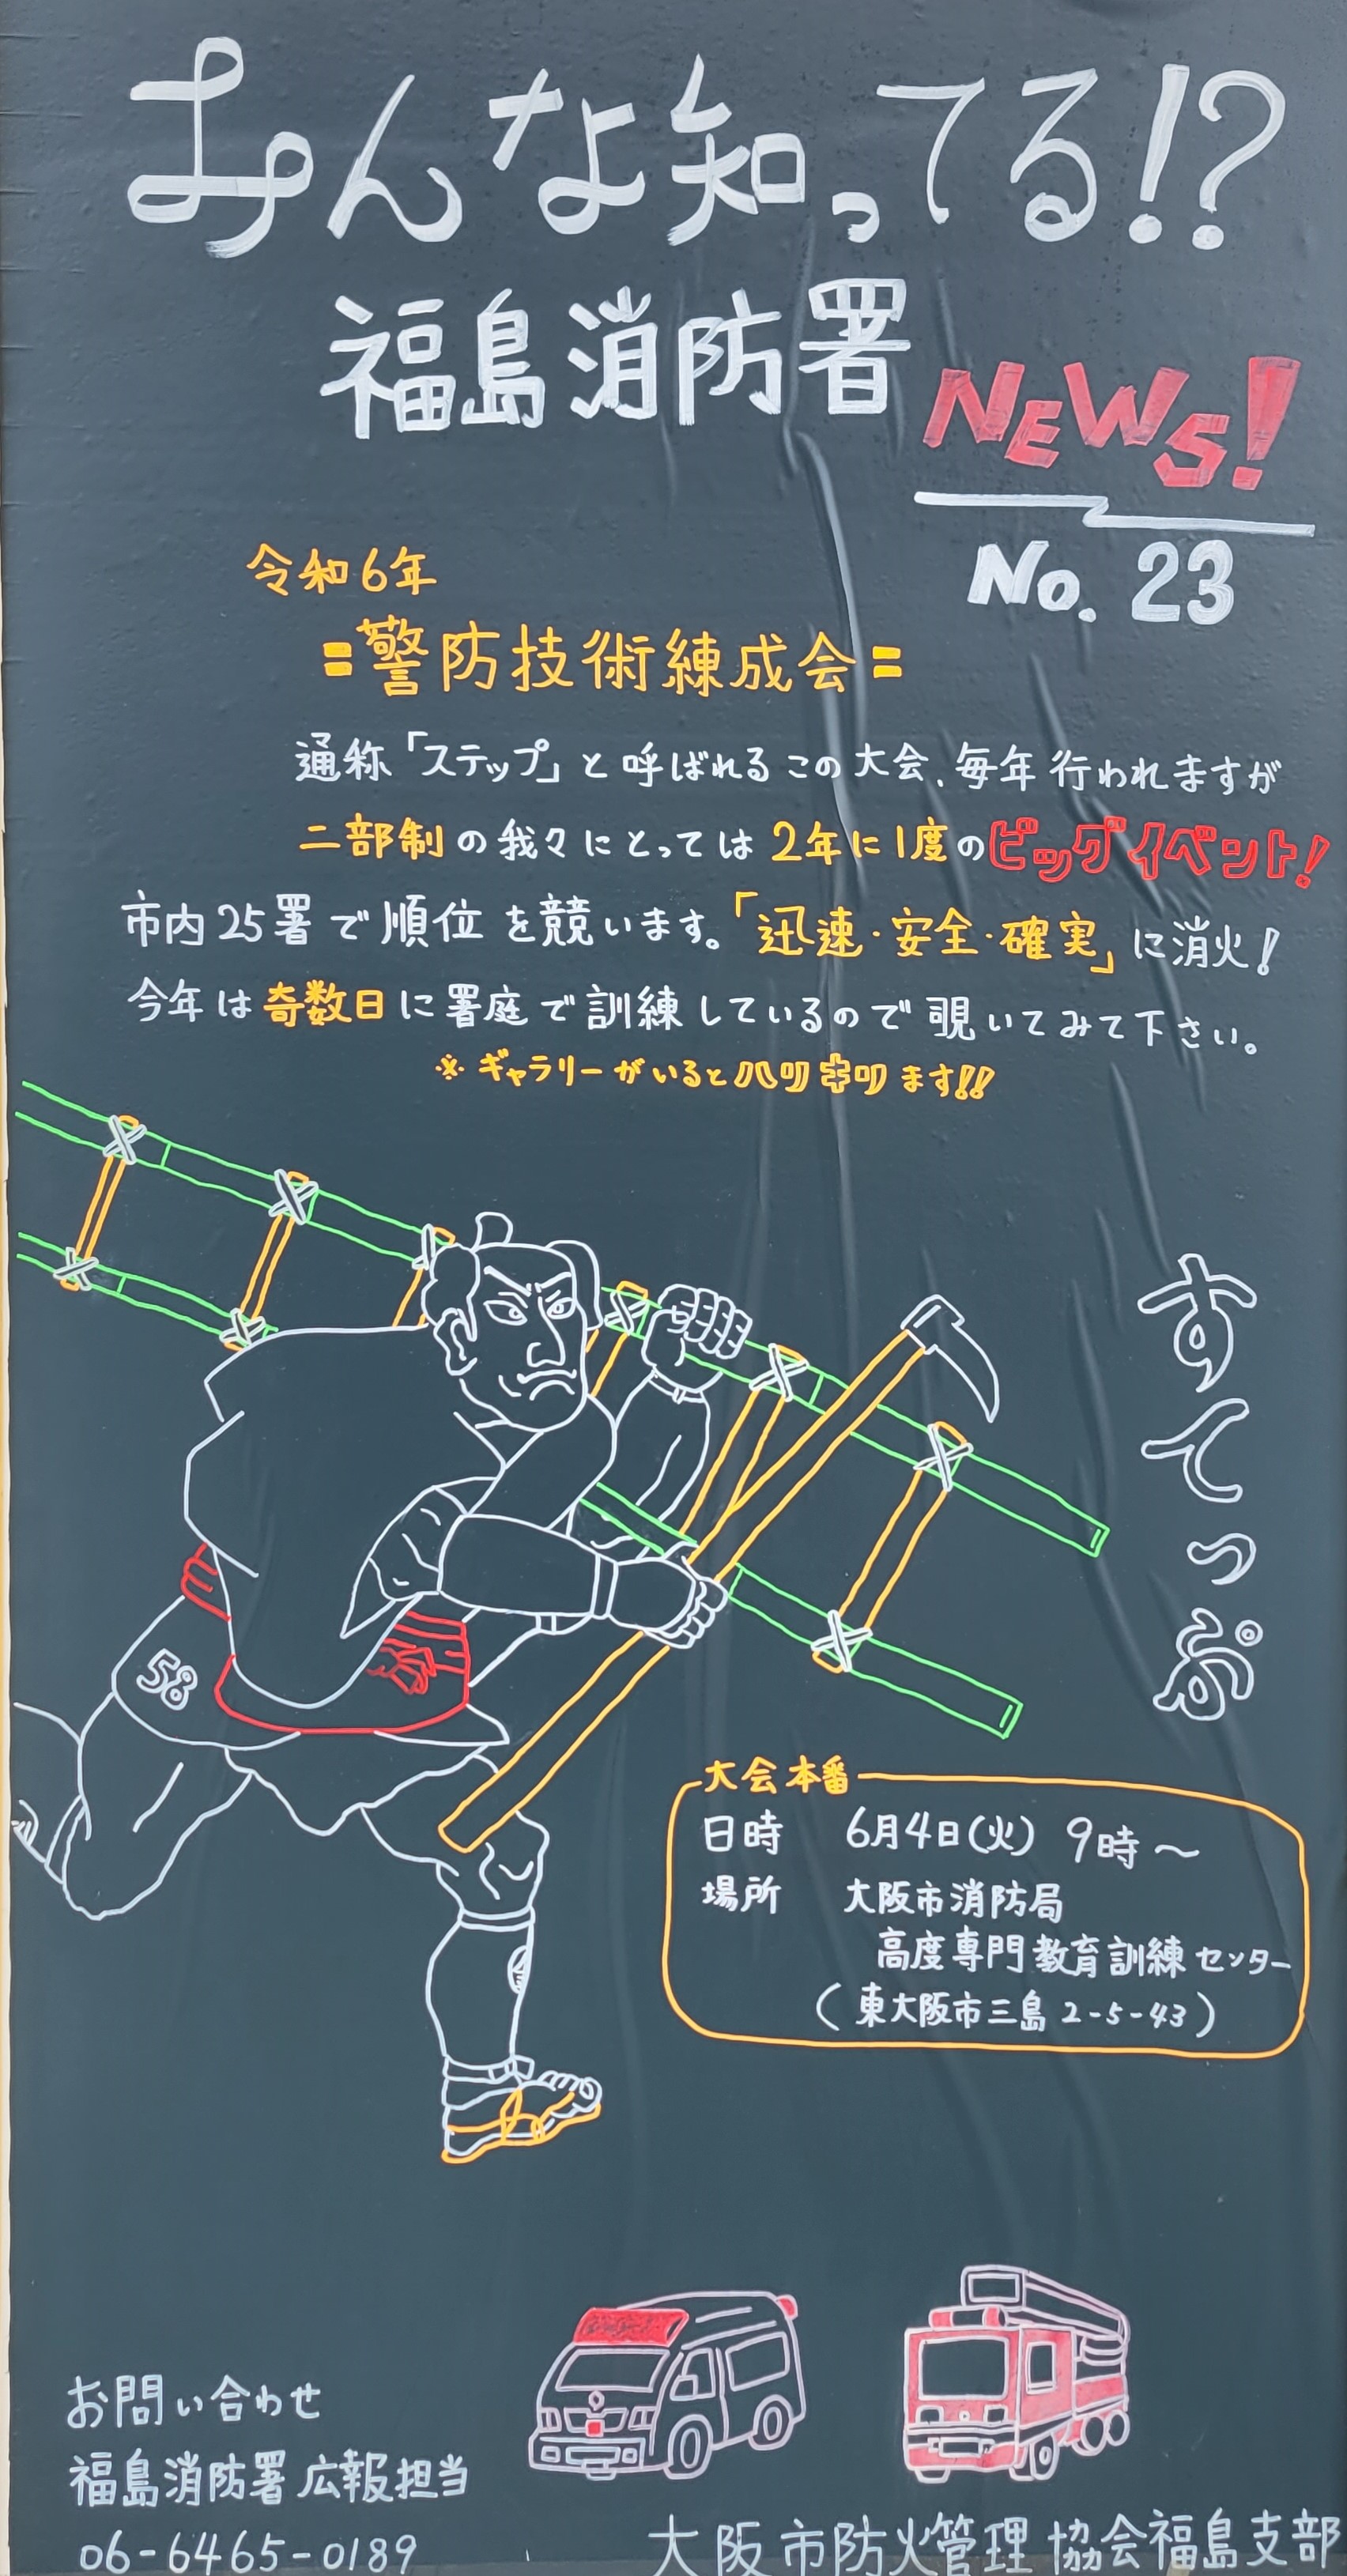 みんな知ってる!?
福島消防署
NEWS!
No. 23
令和6年
=警防技術練成会=
通称「ステップ」と呼ばれるこの大会、毎年行われますが
二部制の我々にとっては2年に1度のビッグイベント!
市内25署で順位を競います。「迅速・安全・確実」に消火!
今年は奇数日に署庭で訓練しているので覗いてみて下さい。
※ギャラリーがいるとハリキリます!!
すてっぷ
58
大会本番
日時 6月4日(火) 9時〜
場所 大阪市消防局
高度専門教育訓練センター
(東大阪市三島2-5-43)
お問い合わせ
福島消防署広報担当
06-6465-0189
大阪市防火管理協会福島支部